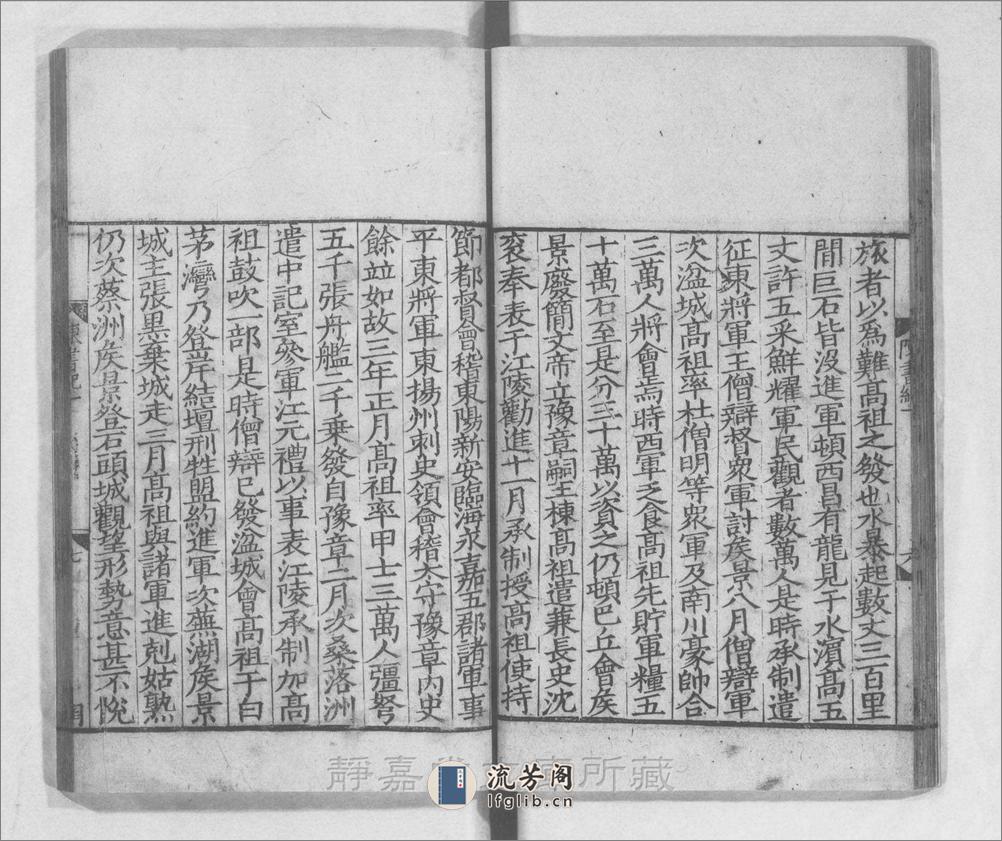 旅者以爲難高祖之發也水暴起數丈三百里
間巨石皆沒進軍頓西昌有龍見于水濵高五
丈許五采鮮耀軍民觀者數萬人是時承制遣
征東將軍王僧辯督衆軍討侯景八月僧辯軍
次湓城高祖率杜僧明等衆軍及南川豪帥合
三萬人將會焉時西軍乏食高祖先貯軍糧五
十萬石至是分三十萬以資之仍頓巴丘會侯
景廢簡文帝立豫章嗣王棟高祖遣兼長史沈
衮奉表于江陵勸進十一月承制授高祖使持
節都督會稽東陽新安臨海永嘉五郡諸軍事
平東將軍東揚州刺史領會稽太守豫章内史
餘並如故三年正月高祖率甲士三萬人彊弩
五千張舟艦二千乗發自豫章二月次桑落洲
遣中記室參軍江元禮以事表江陵承制加高
祖鼓吹一部是時僧辯已發湓城會高祖于白
茅灣乃登岸結壇刑牲盟約進軍次蕪湖侯景
城主張黒棄城走三月高祖與諸軍進剋姑熟
仍次蔡洲侯景登石頭城觀望形勢意甚不恱
陳書紀一
七
靜嘉 所藏
流芳阁
lfglib.cn